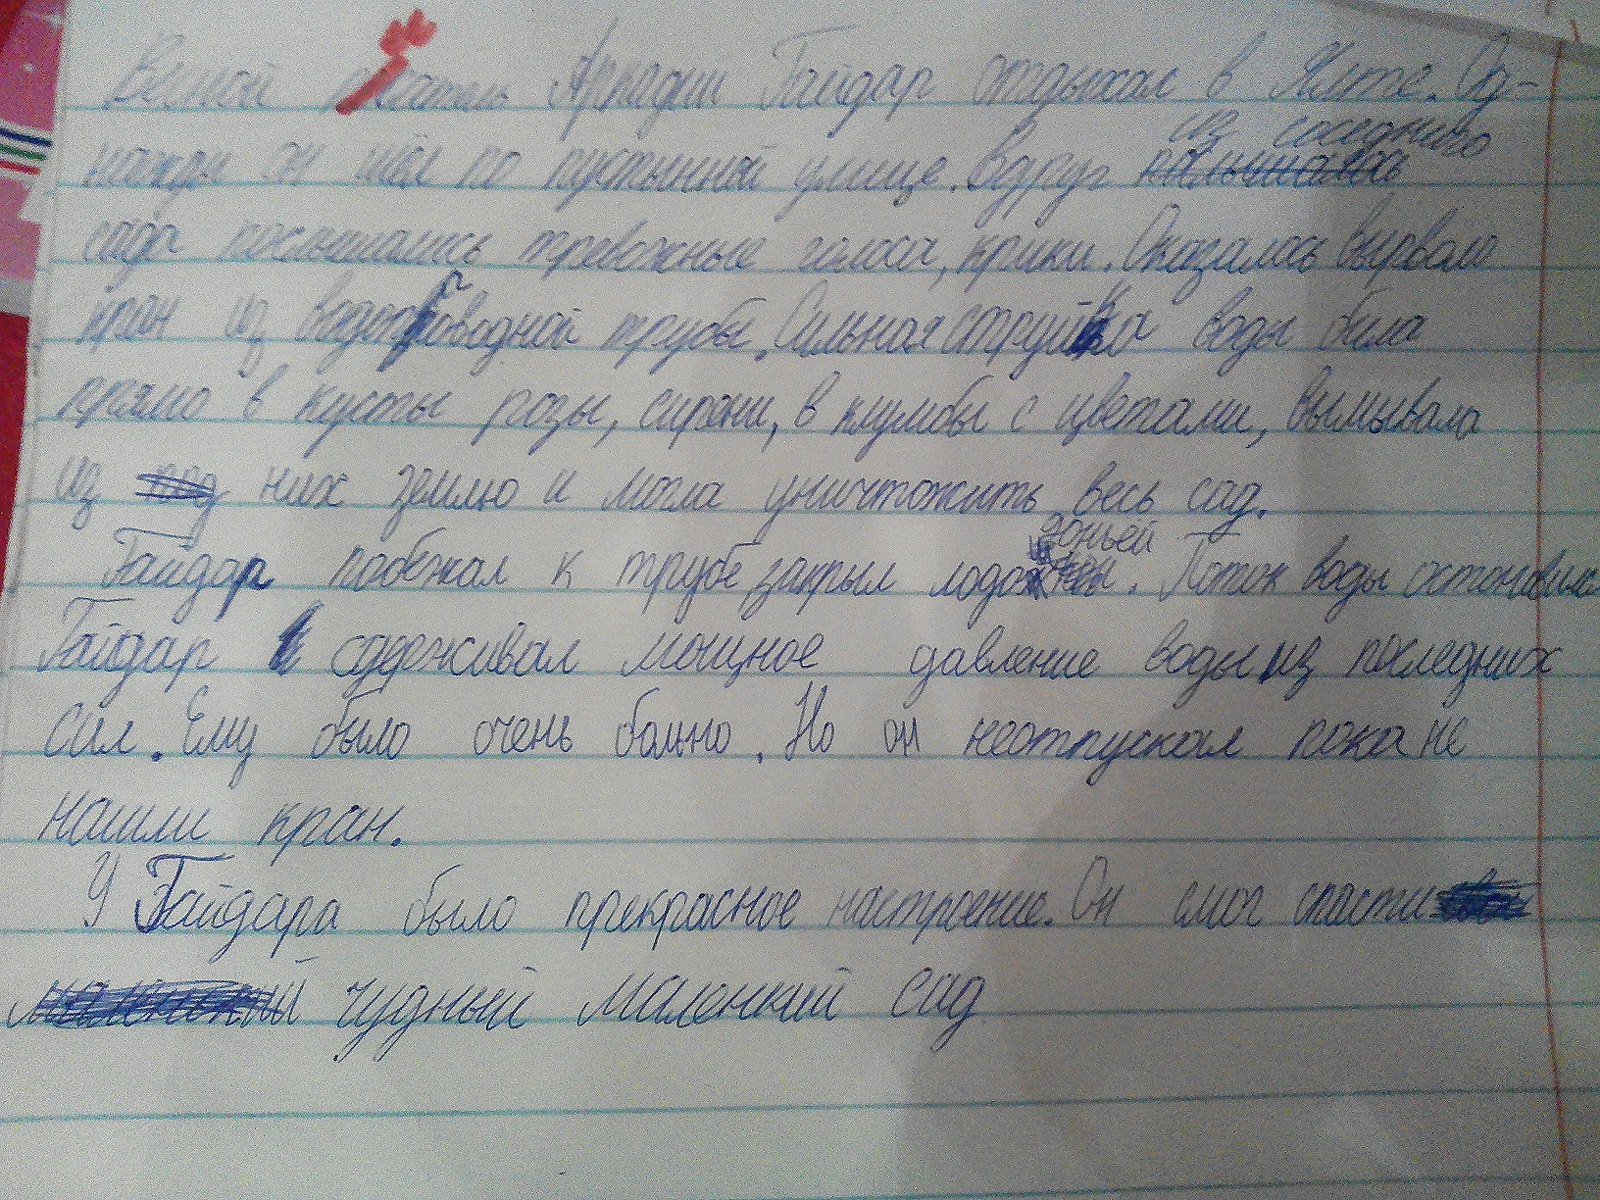 Весной писатель Аркадий Гайдар отдыхал в Ялте. Од-
нажды он шёл по пустынной улице. Вдруг из соседнего
сада послышались тревожные голоса, крики. Оказалось вырвало
кран из водопроводной трубы. Сильная струйка воды била
прямо в кусты розы, сирени, в клумбы с цветами, вымывала
из них землю и могла уничтожить весь сад.
Гайдар побежал к трубе, закрыл ладоньей. Поток воды
Гайдар сдерживал мощное давление воды из последних
сил. Ему было очень больно. Но он неотпускал пока не
нашли кран.
У Гайдара было прекрасное настроение. Он смог спасти
чудный маленкий сад